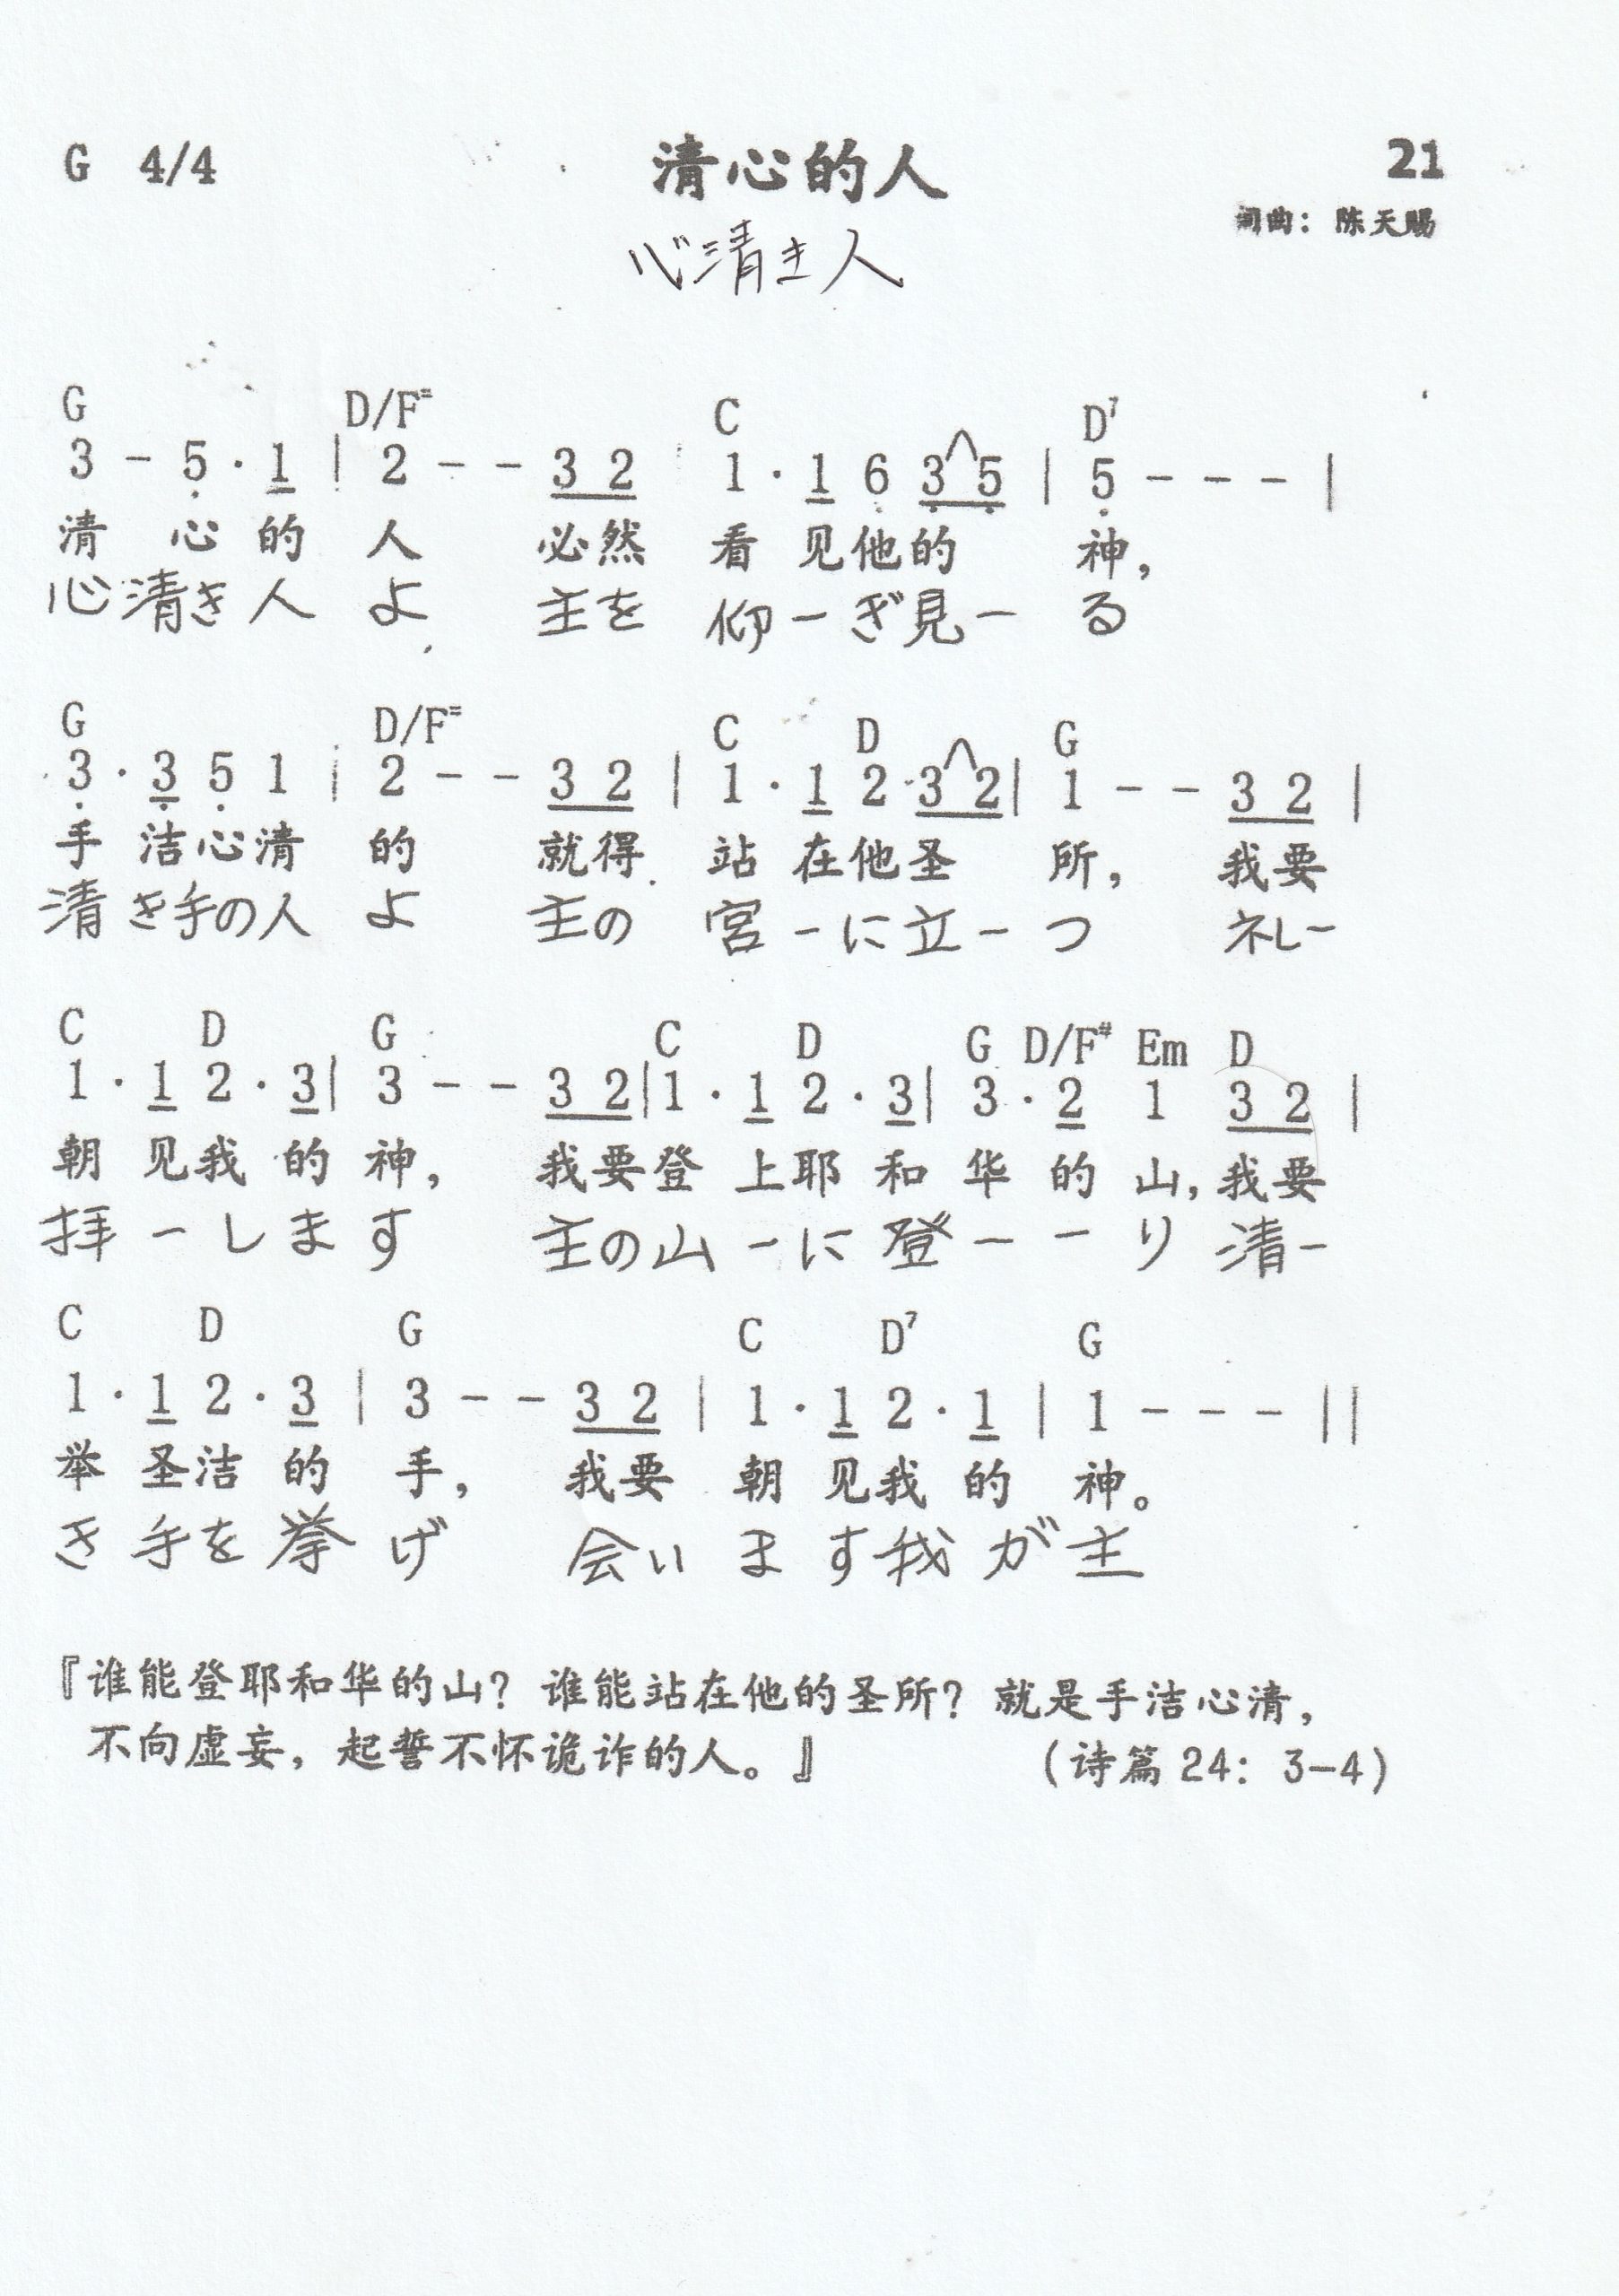 G 4/4 清心的人 21
词曲：陈天赐
心清き人
G D/F# C D7
3 - 5 · 1 | 2 - - 3 2 1 · 1 6 3 5 | 5 - - - |
清 心 的 人 必然 看 见他的 神，
心清き人 よ 主を 仰ーぎ見ー る
G D/F# C D G
3 · 3 5 1 | 2 - - 3 2 | 1 · 1 2 3 2 | 1 - - 3 2 |
手 洁心清 的 就得 站 在他圣 所， 我要
清き手の人 よ 主の 宮ーに立ー つ 礼ー
C D G C D G D/F# Em D
1 · 1 2 · 3 | 3 - - 3 2 | 1 · 1 2 · 3 | 3 · 2 1 3 2 |
朝 见我 的 神， 我要登 上耶 和 华 的 山，我要
拝ーします 主の山ーに登ーーり 清ー
C D G C D7 G
1 · 1 2 · 3 | 3 - - 3 2 | 1 · 1 2 · 1 | 1 - - - ||
举 圣洁 的 手， 我要 朝 见我 的 神。
き手を挙 げ 会い ます我が主
『谁能登耶和华的山？谁能站在他的圣所？就是手洁心清，
不向虚妄，起誓不怀诡诈的人。』 （诗篇 24：3-4）